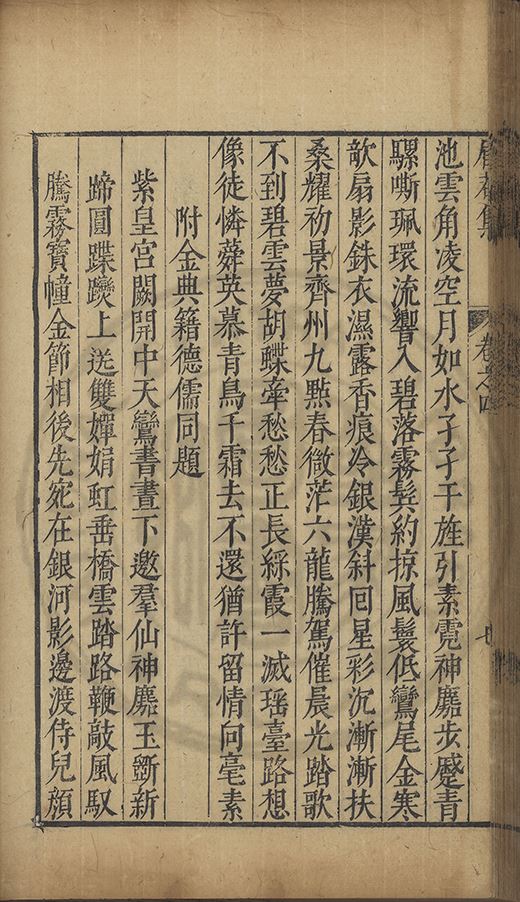 卷之四
七
池雲角凌空月如水孑孑干旌引素霓神麃步蹙青
騾嘶珮環流響入碧落霧鬂約掠風鬟低鸞尾金寒
欹扇影銖衣濕露香痕冷銀漢斜回星彩沉漸漸扶
桑耀初景齊州九點春微茫六龍騰駕催晨光踏歌
不到碧雲夢胡蝶牽愁愁正長綵霞一滅瑤臺路想
像徒憐蕣英慕青鳥千霜去不還猶許留情向毫素
附金典籍德儒同題
紫皇宮闕開中天鸞書晝下邀羣仙神麃玉斵新
蹄圓蹀躞上送雙嬋娟虹垂橋雲踏路鞭敲風馭
騰霧寶幢金節相後先宛在銀河影邊渡侍兒顏